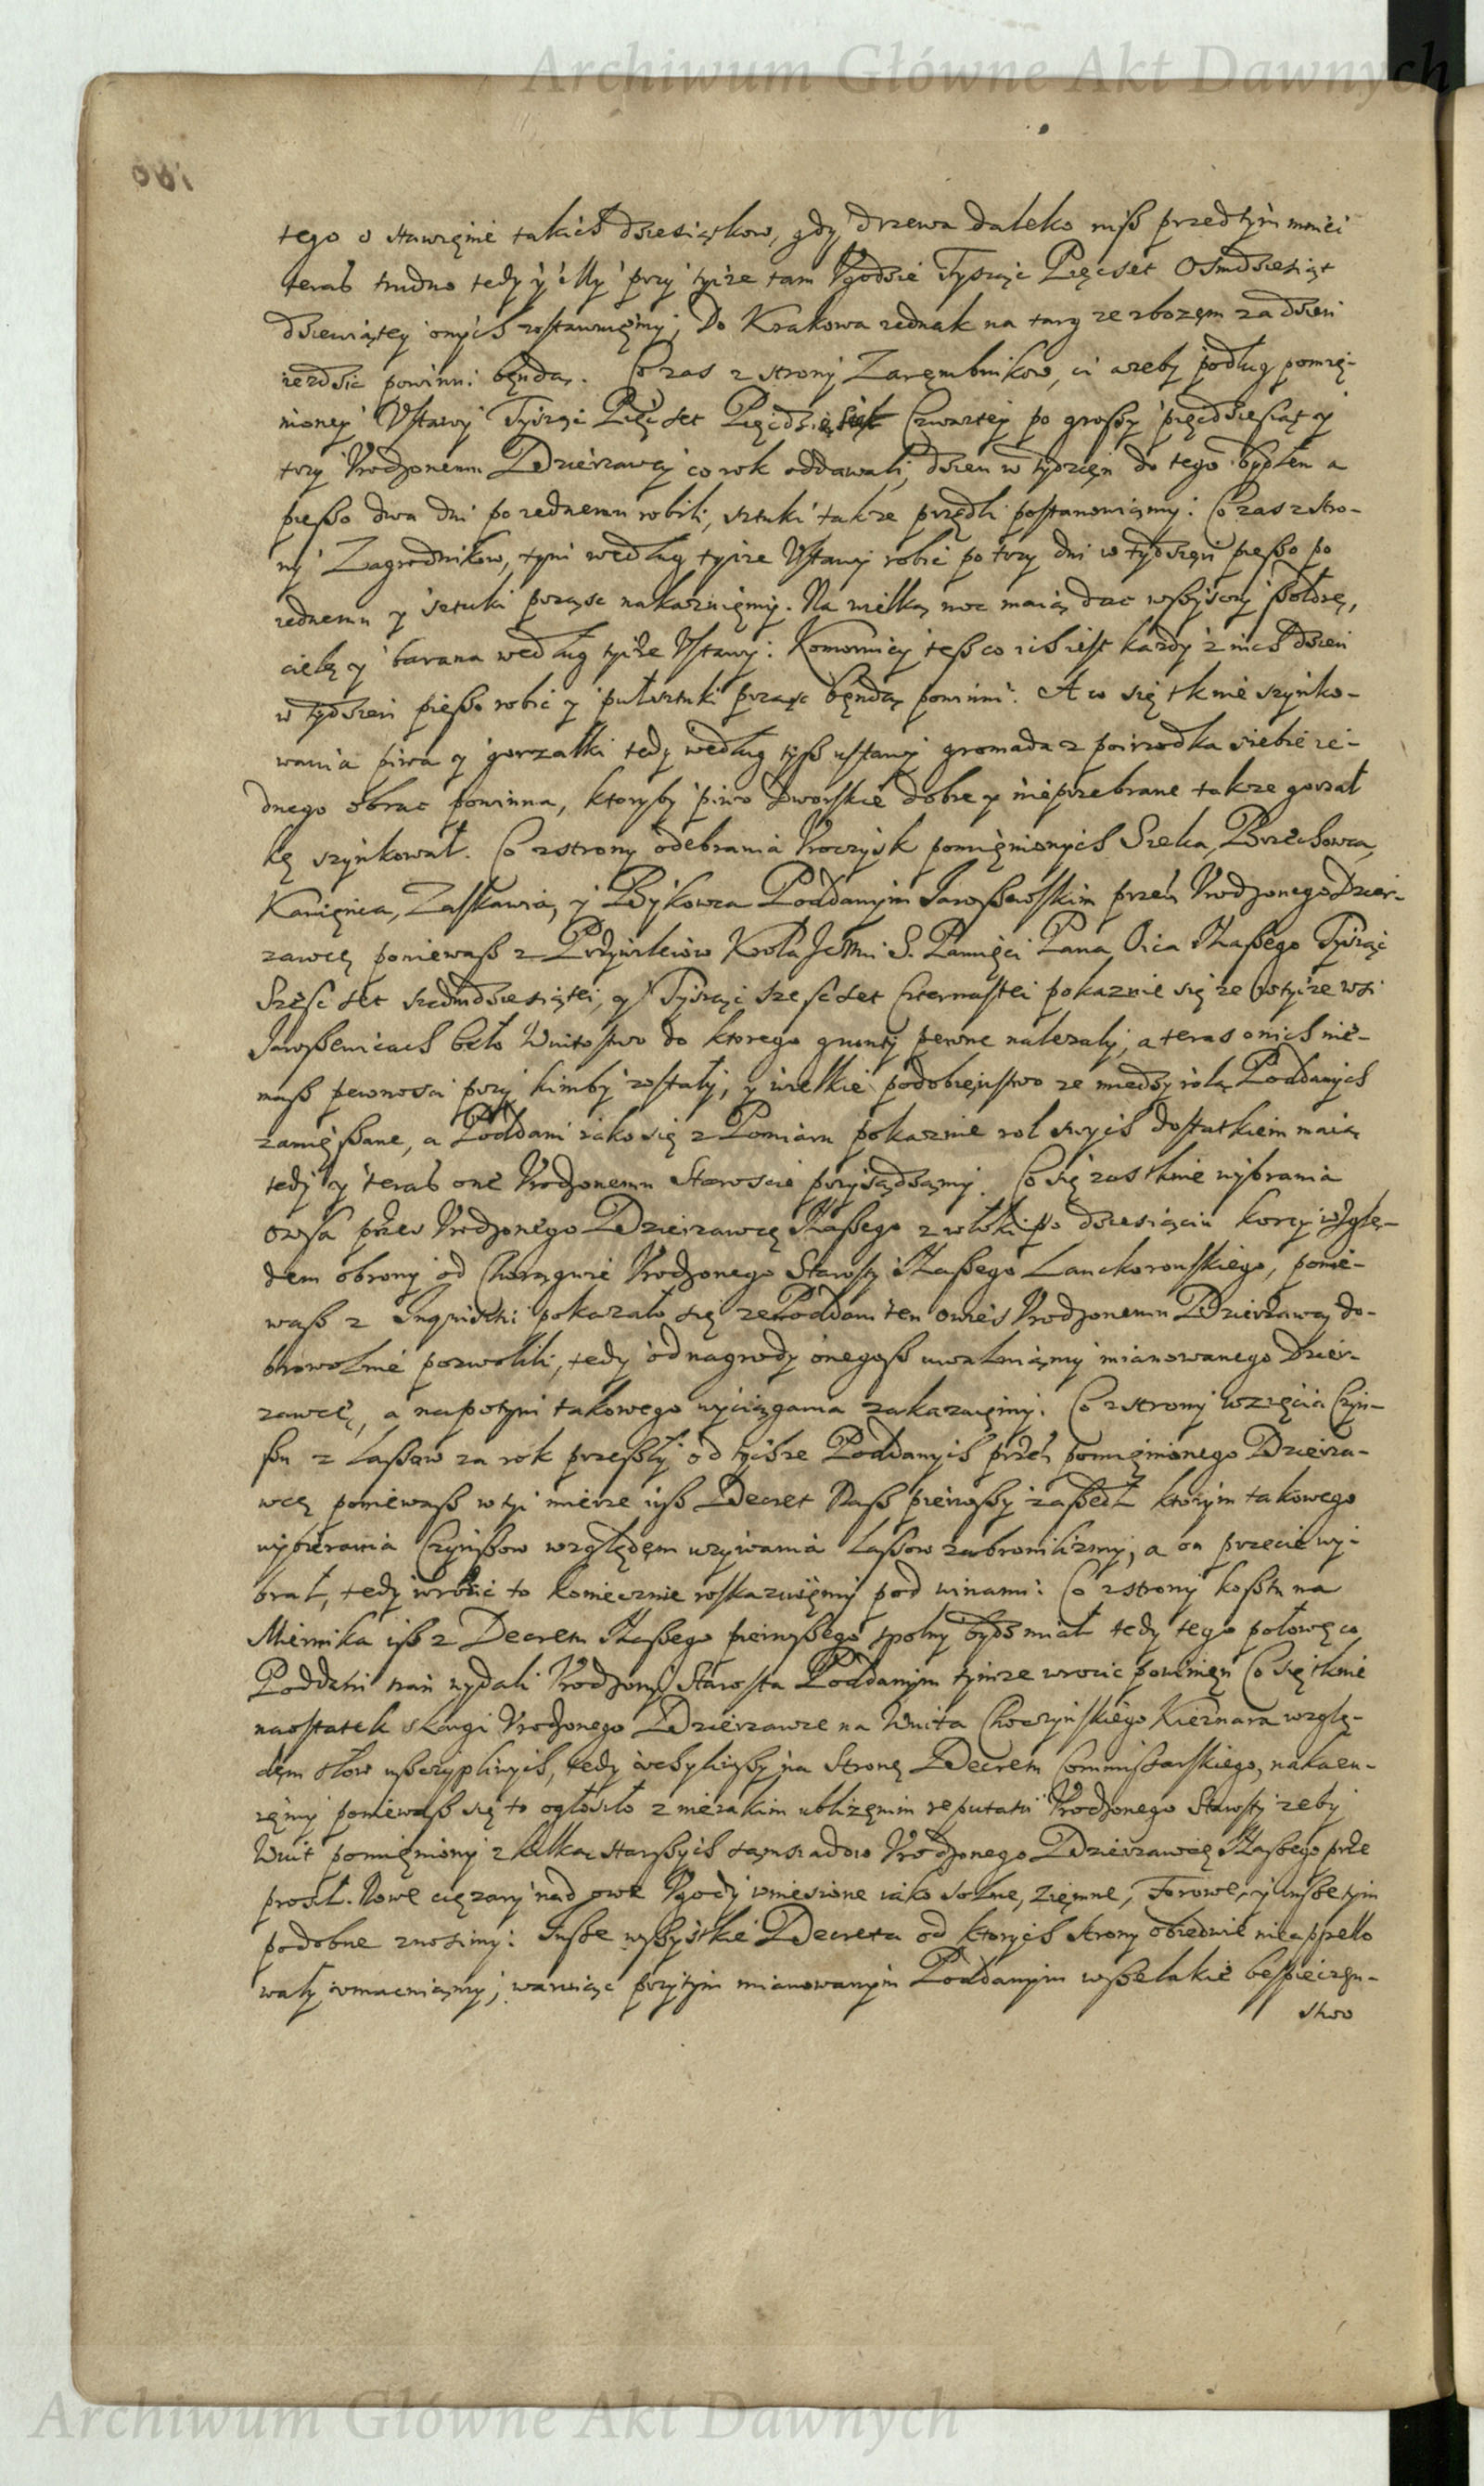 Archiwum Główne Akt Dawnych
tego o stawięnie takich dziesiątkow, gdy drzewa daleko niß przedtym mniei
teraß trudno tedy y My przy tyize tam Ugodzie Tysząc Pięcset Osmdziesiąt
dziewiątey onych zostawuięmy, Do Krakowa iednak na targ ze zbożęm za dzień
iezdzic powinni będą. Co zas z strony Zaręmbnikow, ci azeby podług pomię-
nioney Ustawy Tysząc Pięcset Pięcdziesiąt Czwartey po groszy pięcdziesiąt y
trzy Urodzonemu Dzierzawcy co rok oddawali, dzien w tydzięn do tego bydłem a
pießo dwa dni po iednemu robili, sztuki takze przędli postanowiamy. Co zas z stro-
ny Zagrodnikow, tym według tyize Ustawy robic po trzy dni w tydzięn pießo po
iednemu y sztuki prząsc nakazuięmy. Na wielką noc maią dac wßyscy ßołdrę,
cielę y barana według tyize Ustawy. Komornicy teß co ich iest kazdy z nich dzien
w tydzien pießo robic y pułsztuki prząsc będą powinni. A co się tknie szynko-
wania piwa y gorzałki tedy według tyß ustawy gromada z posrzodka siebie ie-
dnego obrac powinna, ktoryby piwo dworskie dobre y nieprzebrane takze gorzał
kę szynkował. Co z strony odebrania Uroczysk pomięnionych Szeka, Brzechowca,
Kamięnca, Zaskawia, y Bykowca Poddanym Jaroßowskim przeß Urodzonego Dzier-
zawcę poniewaß z Przywileiow Krola JeMci S. Pamięci Pana Oica Naßego Tysząc
Szescset siedmdziesiątei, y Tysząc szescset Czternastei pokazuie się ze w tyize wsi
Jaroßowicach beło Wuitostwo do ktorego grunty pewne nalezały, a teraß o nich nie-
maß pewnosci przy kimby zostały, y wielkie podobięnstwo ze miedzy rolą Poddanych
zamięßane, a Poddani iako się z Pomiaru pokazuie rol swych dostatkiem maią
tedy y teraß one Urodzonemu Staroscie przysądzamy. Co się zas tknie wybrania
owsa przes Urodzonego Dzierzawcę Naßego z włoki po dziesiąciu korcy wzglę-
dem obrony od Chorągwie Urodzonego Starosty Naßego Lanckoronskiego, ponie-
waß z Inquisitii pokazało się ze Poddani ten owies Urodzonemu Dzierzawcy do-
browolnie pozwolili, tedy od nagrody onegoß uwalniamy mianowanego Dzier-
zawcę, a napotym takowego wyciągania zakazuięmy. Co z strony wzięcia Czyn-
ßu z Lasow za rok przeßły od tychze Poddanych przeß pomięnionego Dzierza-
wcę poniewaß w tyi mierze iuß Decret Naß pierwßy zaßedł ktorym takowego
wybierania Czynßow względęm uzywania Lassow zabronilismy, a on przecie wy-
brał, tedy wrocic to koniecznie roskazuięmy pod winami. Co z strony koßtu na
Miernika iß z Decretu Naßego pierwßego spolny bydz miał tedy tego połowę co
Poddani nan wydali Urodzony Starosta Poddanym tymze wrocic powinięn Co się tknie
naostatek skargi Urodzonego Dzierzawce na Wuita Choczynskiego Kiernara wzglę-
dęm słow ußczypliwych, tedy uchyliwßy na stronę Decretu Commissarskiego, nakazu-
ięmy poniewaß się to ogłosiło z nieiakim ubliżęnim reputatii Urodzonego Starosty zeby
Wuit pomięniony z kilką starßych sąmsiadow Urodzonego Dzierzawcę Naßego prze
prosił. Nowe ciężary nad owe Ugody wniesione iako solne, Ziemne, Forowe, y inße tym
podobne znosimy. Inße wßystkie Decreta od ktorych strony obiedwie nie appello
wały zmacniamy, waruiąc przytym mianowanym Poddanym wßelakie bespieczęn-
stwo
Archiwum Główne Akt Dawnych